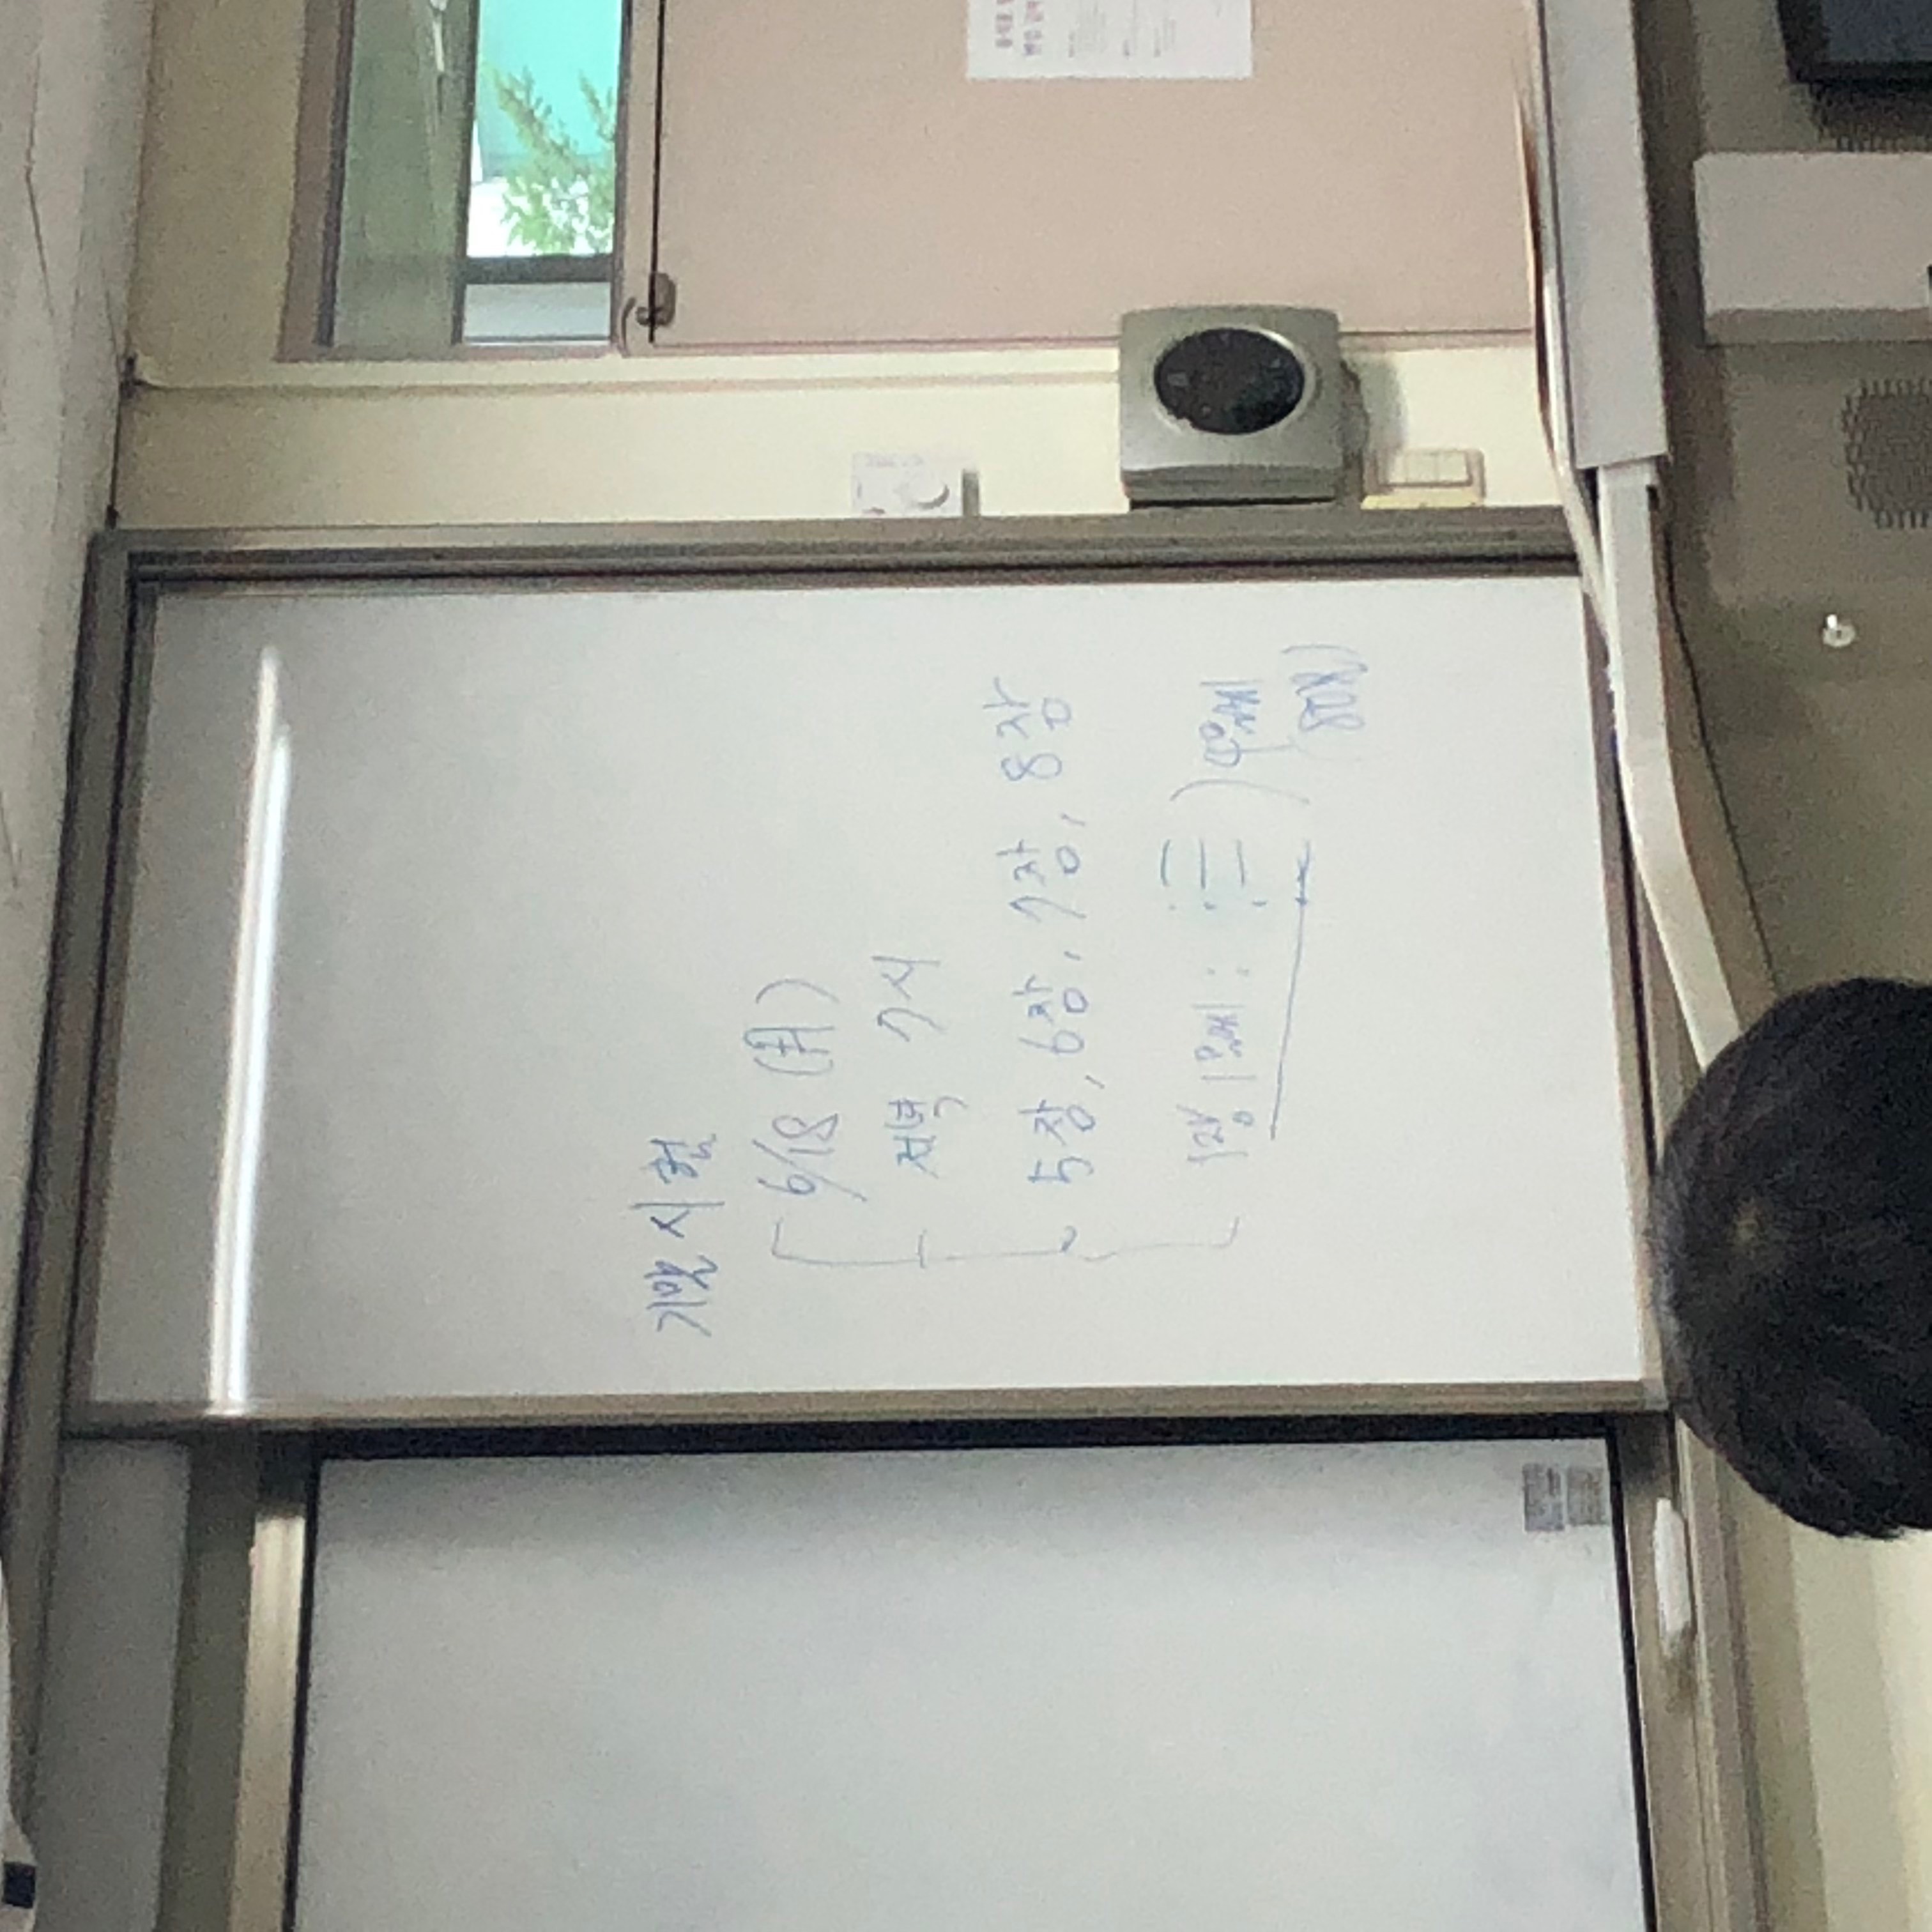 기말시험
6/18 (月)
저녁 7시
5장, 6장, 7장, 8장
1장 1문제 : ) 4문제
(80%)